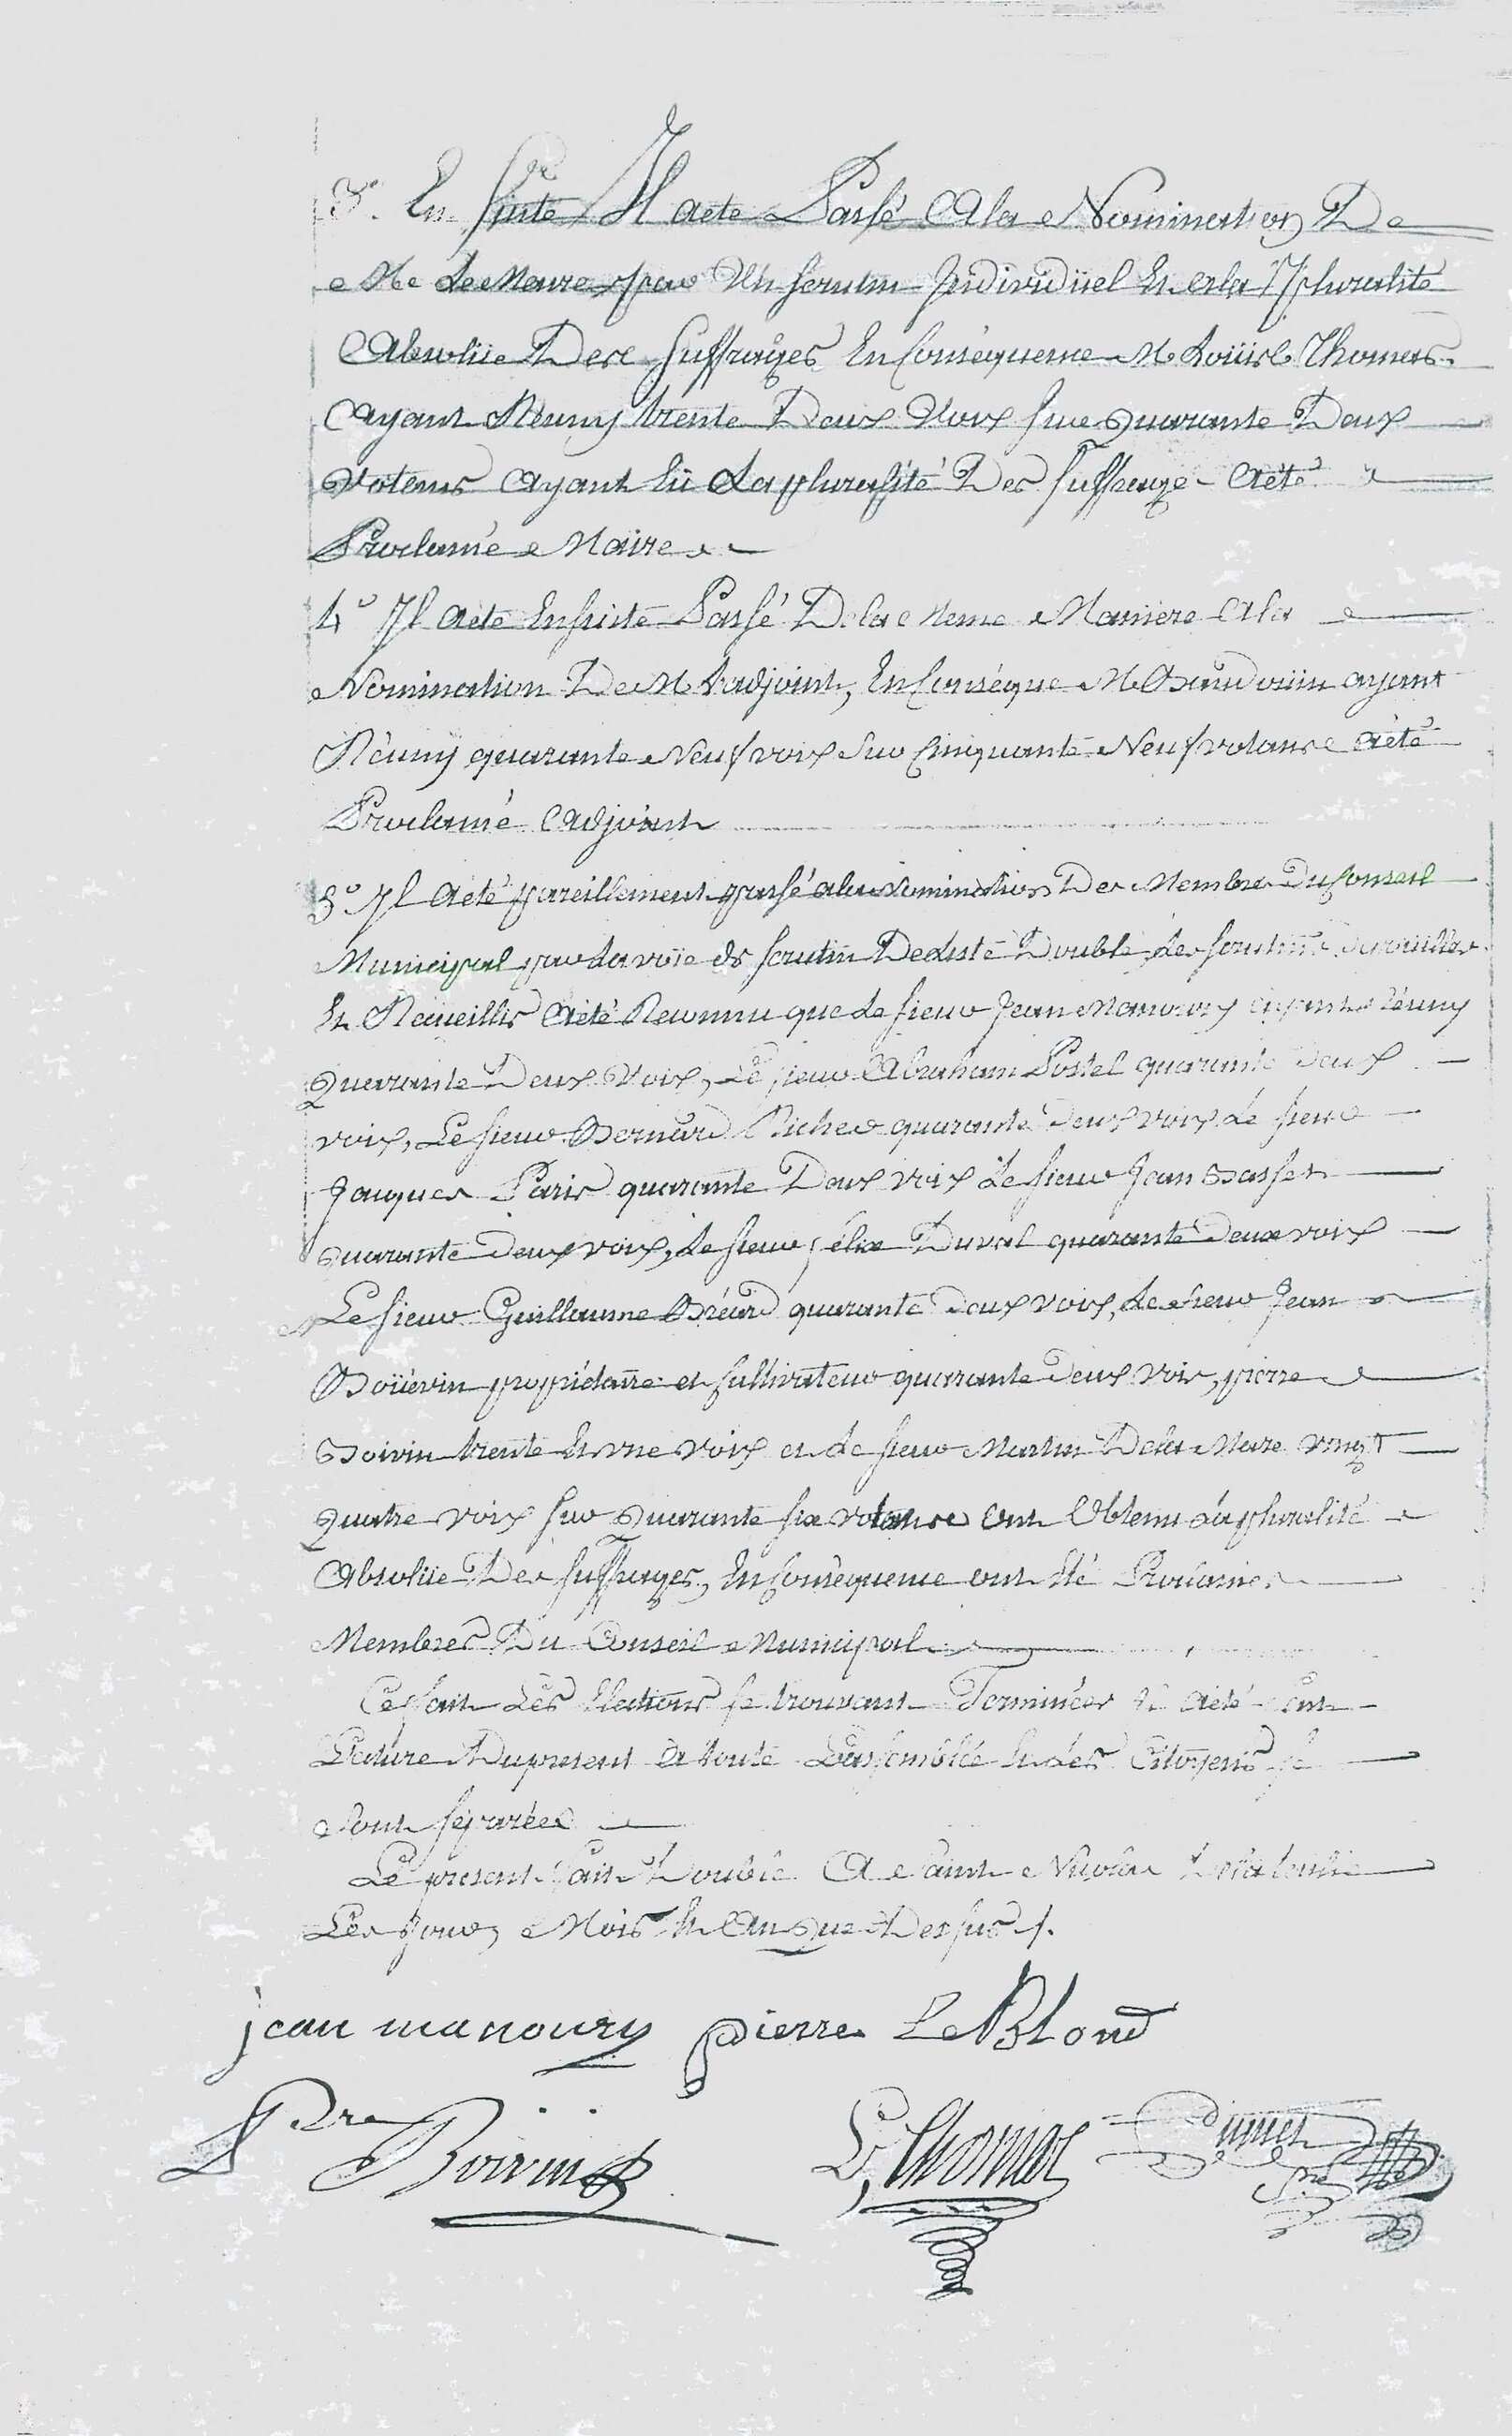 3° En suite Il a eté Passé A la Nomination De
Mr Le Maire par Un scrutin Individüel Et a la pluralité
Absolüe Des Suffrages En Conséquence Mr Loüis Thomas
Ayant Réuny trente Deux Voix sur Quarante Deux
Votans Ayant Eü La pluralité Des Suffrage A été
Proclamé Maire
4° Il A eté Ensuite Passé De la Meme Maniere A la
Nomination De Mr L'adjoint, En Conséque Mr Baudoüin ayant
Réuny quarante Neuf voix Sur Cinquante Neuf votans a été
Proclamé Adjoint
5° Il A eté pareillement passé a la Nomination Des Membres Du Conseil
Municipal par la voïe de scrutin De Liste Double, Les scrutins
Et Recueillis A été Reconnu que Le sieur Jean Manoury ayant Réuny
Quarante Deux Voix, Le sieur Abraham Postel quarante Deux
voix, Le sieur Bernard Richer quarante Deux voix Le sieur
Jacques Paris quarante Deux voix Le sieur Jean Basset
Quarante Deux voix, Le sieur félix Duval quarante Deux voix
Le sieur Guillaume Bréard quarante Deux voix, Le sieur Jean
Boüevin propriétaire et Cultivateur quarante Deux Voix, pierre
Boivin trente Et une voix et Le sieur Martin De la Mare vingt
Quatre voix sur Quarante six votans Ont Obtenu La pluralité
Absolüe Des Suffrages, En Conséquence ont Eté Proclamés
Membres Du Conseil Municipal
Ce fait Les Elections se trouvant Terminées Il A eté fait
Lecture Du present a toute L'assemblée Et Les Citoyens se
Sont séparées
Le present fait Double A Saint Nicolas
Les Jour, Mois Et An Que Dessus /.
jean manoury pierre LeBlond
Pre Boivin L, Thomas